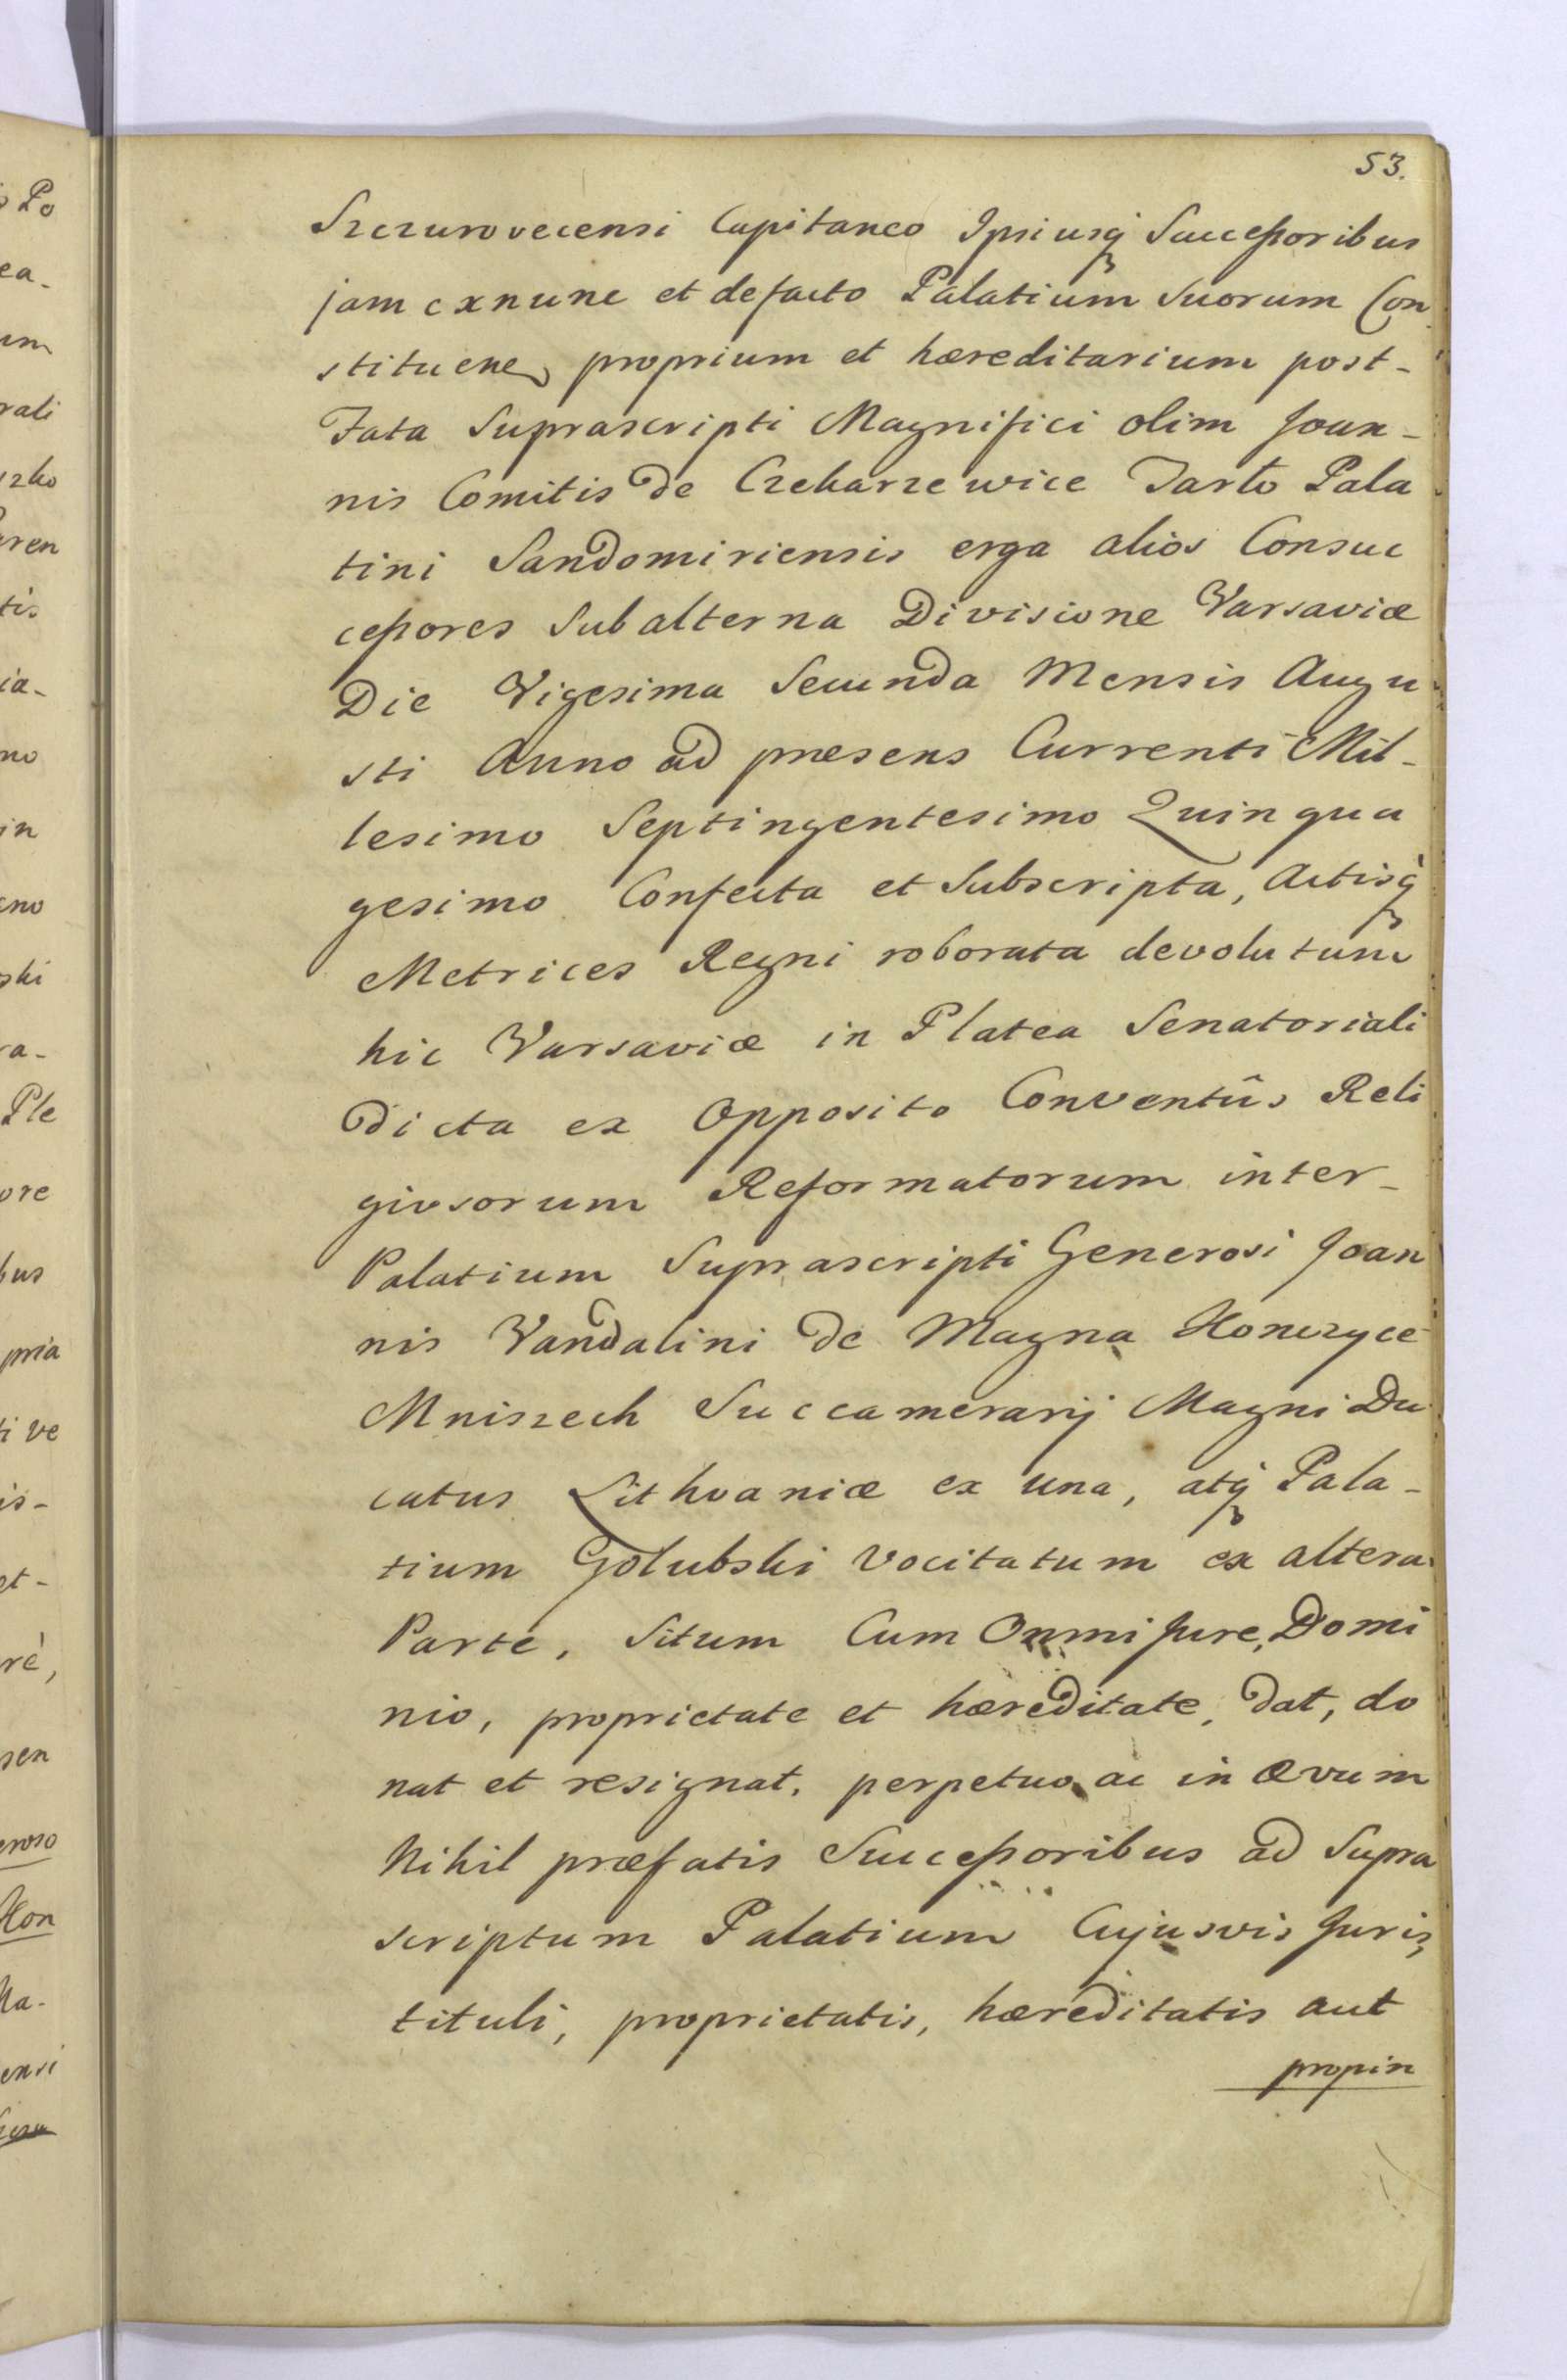 53.
Szczurovecensi Capitaneo Ipsiusq̃ Successoribus
jam exnunc et defacto Palatium Suorum Con
stituen proprium et hæreditarium post-
Fata Suprascripti Magnifici olim Joan-
nis Comitis de Czekarzewice Tarło Pala
tini Sandomiriensis erga alios Consuc
cessores Subalterna Divisione Varsaviæ
Die Vigesima Secunda Mensis Augu
sti Anno ad præsens Currenti Mil-
lesimo Septingentesimo Quinqua
gesimo Confecta et Subscripta, Actisq̃
Metrices Regni roborata devolutum
hic Varsaviæ in Platea Senatoriali
Dicta ex Opposito Conventûs Reli
giosorum Reformatorum inter-
Palatium Suprascripti Generosi Joan
nis Vandalini de Magna Konczyce
Mniszech Succamerarij Magni Du
catus Lithvaniæ ex una, atq̃ Pala-
tium Golubski vocitatum ex altera
Parte, Situm Cum Onmi Jure, Domi
nio, proprietate et hæreditate, dat, do
nat et resignat, perpetuo ac in ævum
Nihil præfatis Successoribus ad Supra
scriptum Palatium Cujusvis Juris,
tituli, proprietatis, hæreditatis aut
propin
Po
ea-
um
rali
szko
ren
tis
ia-
no
in
ski
ra-
Ple
ore
bus
pria
ti ve
is-
et-
rè,
sen
eroso
Kon
Ma-
ensi